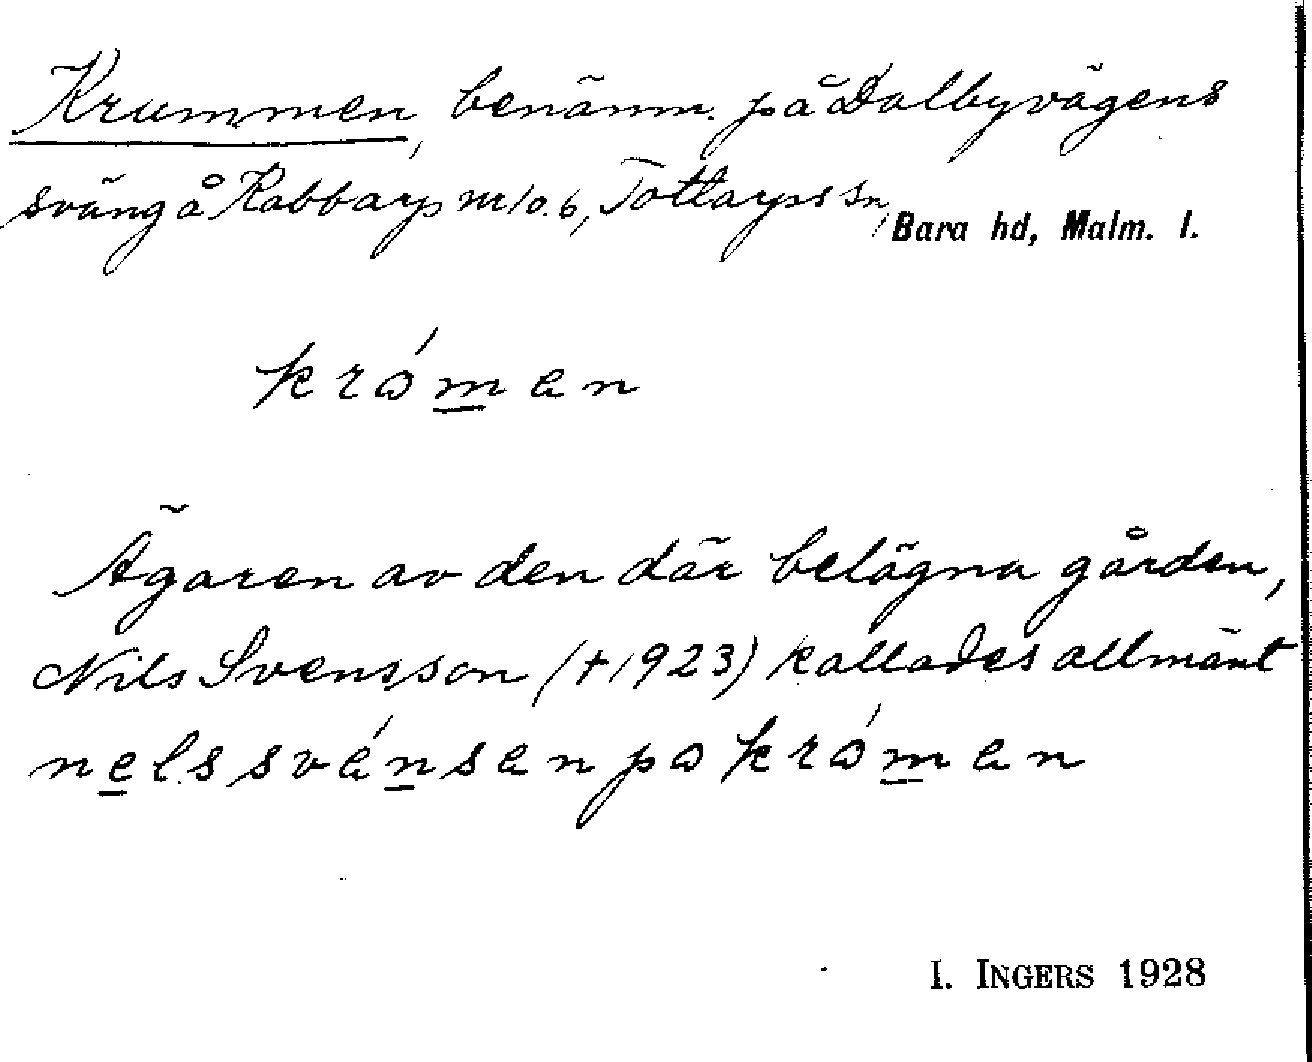 Krummen, benämn. på Dalbyvägens
sväng å Kabbarp nr 1 o. 6, Tottarps sn, Bara hd, Malm. l.
króman
Ägaren av den där belägna gården,
Nils Svensson (†1923) kallades allmänt
nels svénsan po króman
I. INGERS 1928